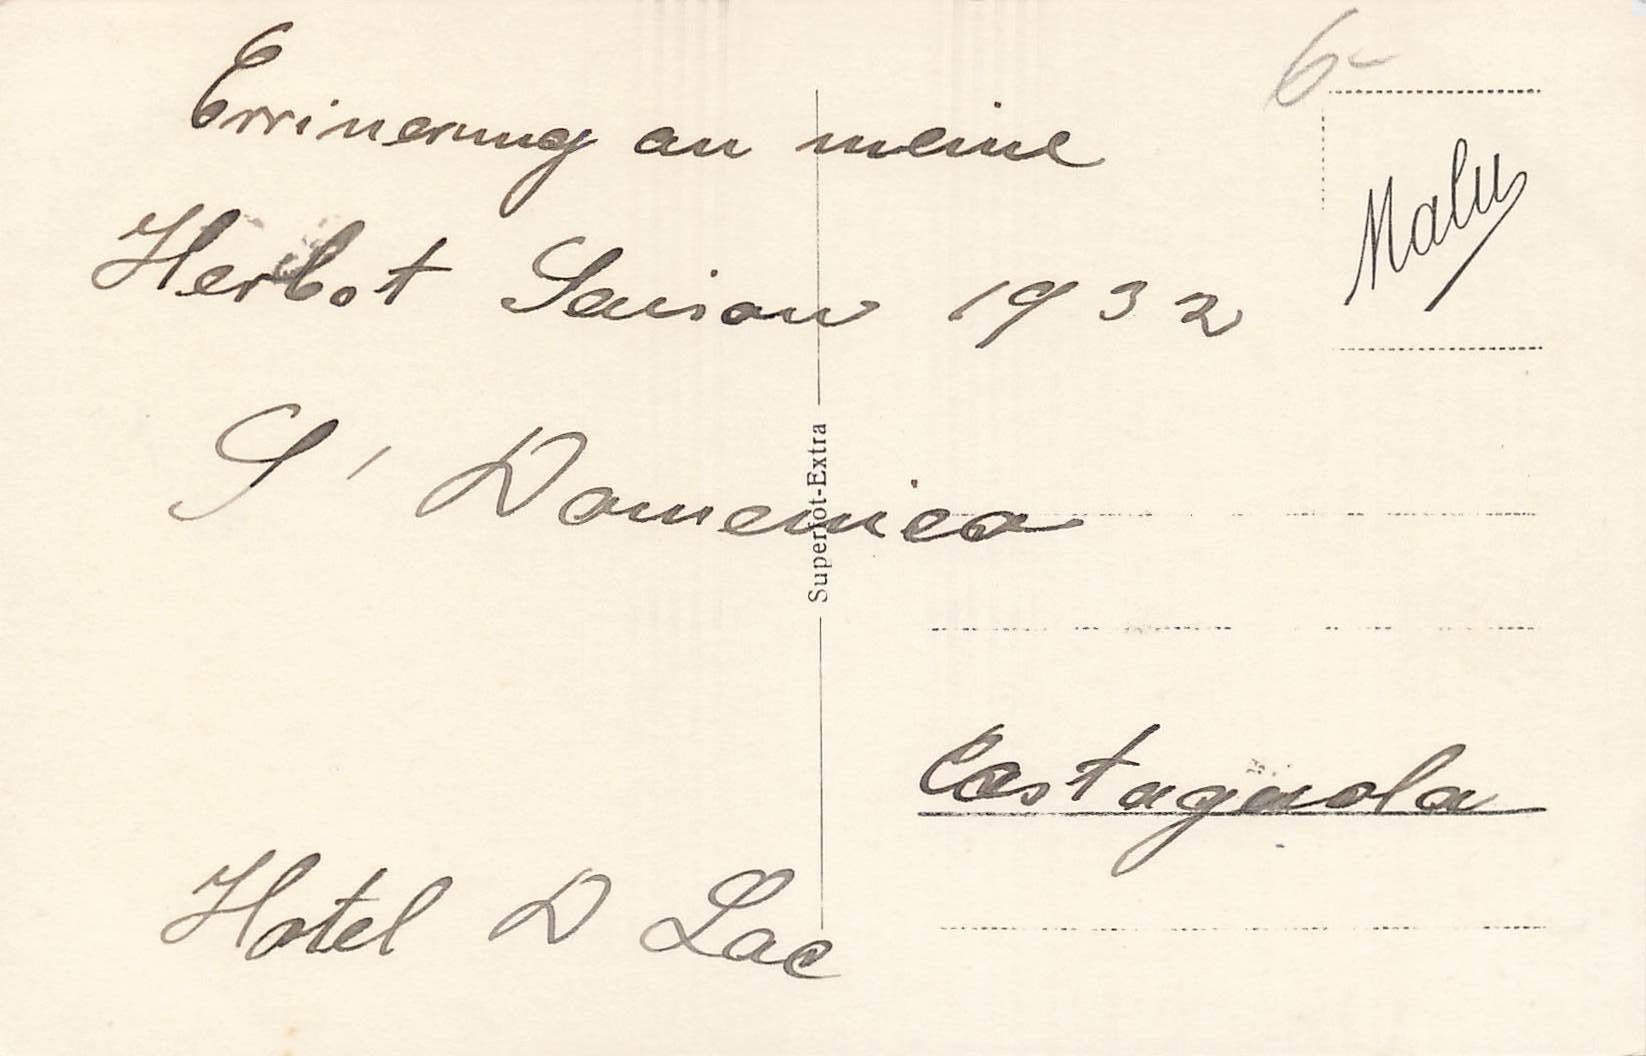 6-
Errinerung an meine
Malu
Herbst Saison 1932
S' Domenico
Superfot-Extra
Castagnola
Hotel D Lac